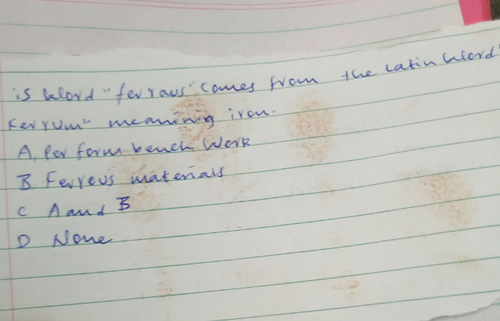 is word "ferraus" comes from the Latin word"
Ferrum" meaning iron.
A. Perform bench work
B Ferrous materials
C A and B
D None